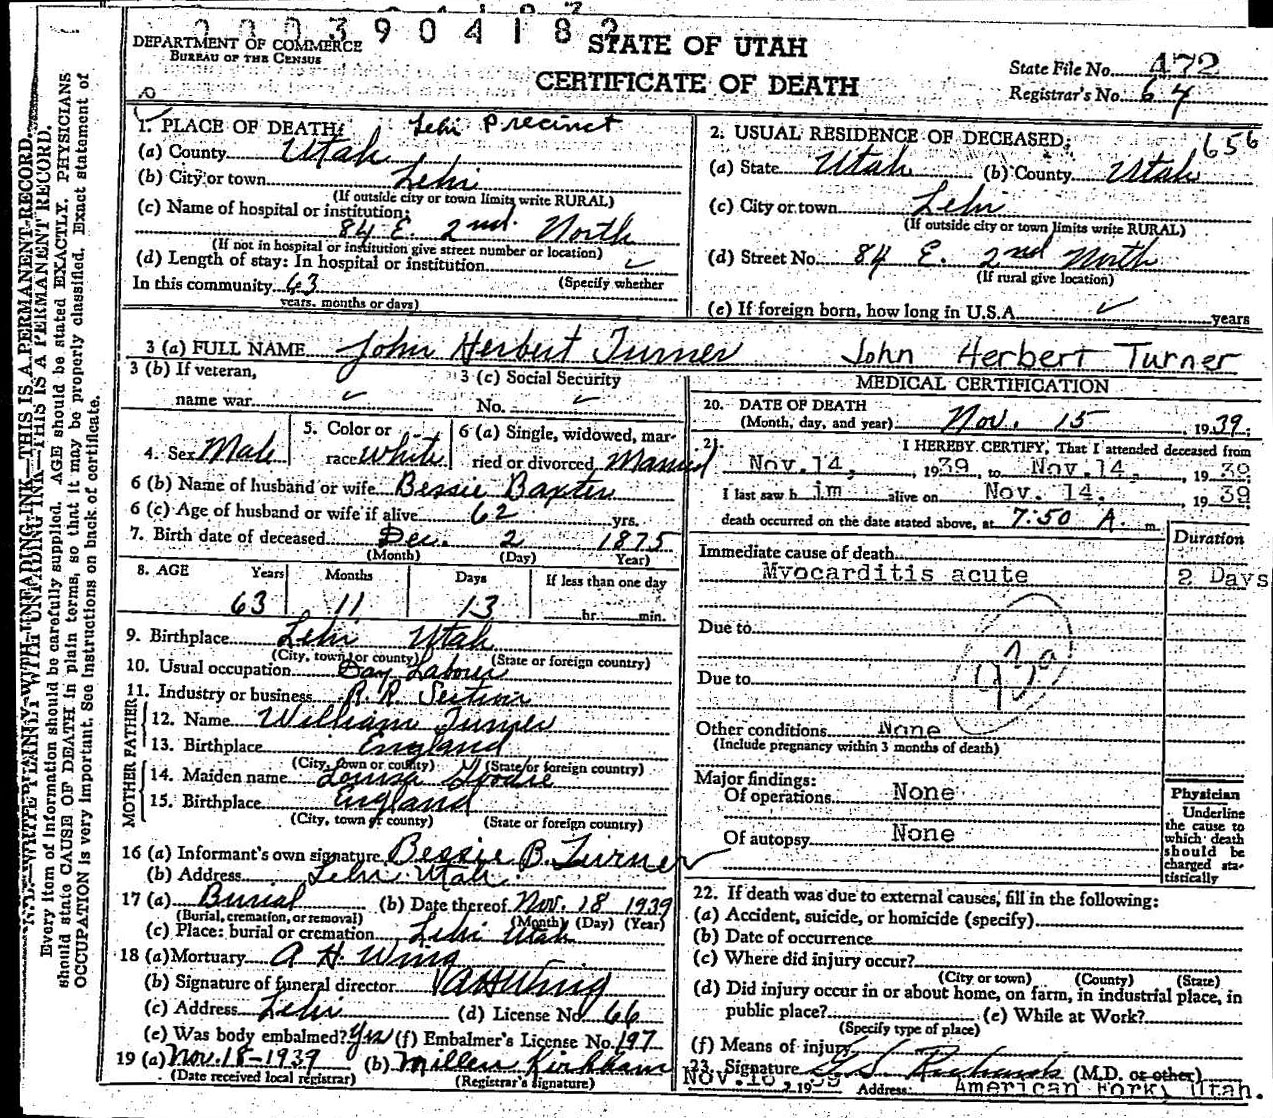 N.B.—WRITE PLAINLY WITH UNFADING INK—THIS IS A PERMANENT RECORD.
Every item of information should be carefully supplied. AGE should be stated EXACTLY. PHYSICIANS
should state CAUSE OF DEATH in plain terms, so that it may be properly classified. Exact statement of
OCCUPATION is very important. See instructions on back of certificate.
DEPARTMENT OF COMMERCE
BUREAU OF THE CENSUS
STATE OF UTAH
CERTIFICATE OF DEATH
State File No. 472
Registrar's No. 64
1. PLACE OF DEATH: Lehi Precinct
(a) County Utah
(b) City or town Lehi
(If outside city or town limits write RURAL)
(c) Name of hospital or institution:
84 E. 2nd North
(If not in hospital or institution give street number or location)
(d) Length of stay: In hospital or institution
In this community 63 (Specify whether
years, months or days)
2. USUAL RESIDENCE OF DECEASED: 656
(a) State Utah (b) County Utah
(c) City or town Lehi
(If outside city or town limits write RURAL)
(d) Street No. 84 E. 2nd North
(If rural give location)
(e) If foreign born, how long in U.S.A. years
3 (a) FULL NAME John Herbert Turner John Herbert Turner
3 (b) If veteran,
name war
3 (c) Social Security
No.
4. Sex Male
5. Color or
race white
6 (a) Single, widowed, mar-
ried or divorced Married
6 (b) Name of husband or wife Bessie Baxter
6 (c) Age of husband or wife if alive 62 yrs.
7. Birth date of deceased Dec. 2 1875
(Month) (Day) Year)
8. AGE Years Months Days If less than one day
63 11 13 hr. min.
9. Birthplace Lehi Utah
(City, town or county) (State or foreign country)
10. Usual occupation Day Labour
11. Industry or business R. R. Section
FATHER
12. Name William Turner
13. Birthplace England
(City, town or county) (State or foreign country)
MOTHER
14. Maiden name Louisa
15. Birthplace England
(City, town or county) (State or foreign country)
16 (a) Informant's own signature Bessie B. Turner
(b) Address Lehi Utah
17 (a) Burial (b) Date thereof Nov. 18 1939
(Burial, cremation, or removal) (Month) (Day) (Year)
(c) Place: burial or cremation Lehi Utah
18 (a) Mortuary A H. Wing
(b) Signature of funeral director A H Wing
(c) Address Lehi (d) License No. 66
(e) Was body embalmed? Yes (f) Embalmer's License No. 197
19 (a) Nov. 18-1939 (b) Millen Kirkham
(Date received local registrar) (Registrar's signature)
MEDICAL CERTIFICATION
20. DATE OF DEATH
(Month, day, and year) Nov. 15 1939
21. I HEREBY CERTIFY, That I attended deceased from
Nov. 14, 1939, to Nov. 14, 1939
I last saw h im alive on Nov. 14. 1939
death occurred on the date stated above, at 7:50 A. m.
Duration
Immediate cause of death
Myocarditis acute 2 Days
Due to
Due to
Other conditions None
(Include pregnancy within 3 months of death)
Major findings:
Of operations None
Of autopsy None
Physician
Underline
the cause to
which death
should be
charged sta-
tistically
22. If death was due to external causes, fill in the following:
(a) Accident, suicide, or homicide (specify)
(b) Date of occurrence
(c) Where did injury occur?
(City or town) (County) (State)
(d) Did injury occur in or about home, on farm, in industrial place, in
public place? (e) While at Work?
(Specify type of place)
(f) Means of injury
23. Signature Richards (M.D. or other)
Nov. 16, 1939 Address: American Fork, Utah.